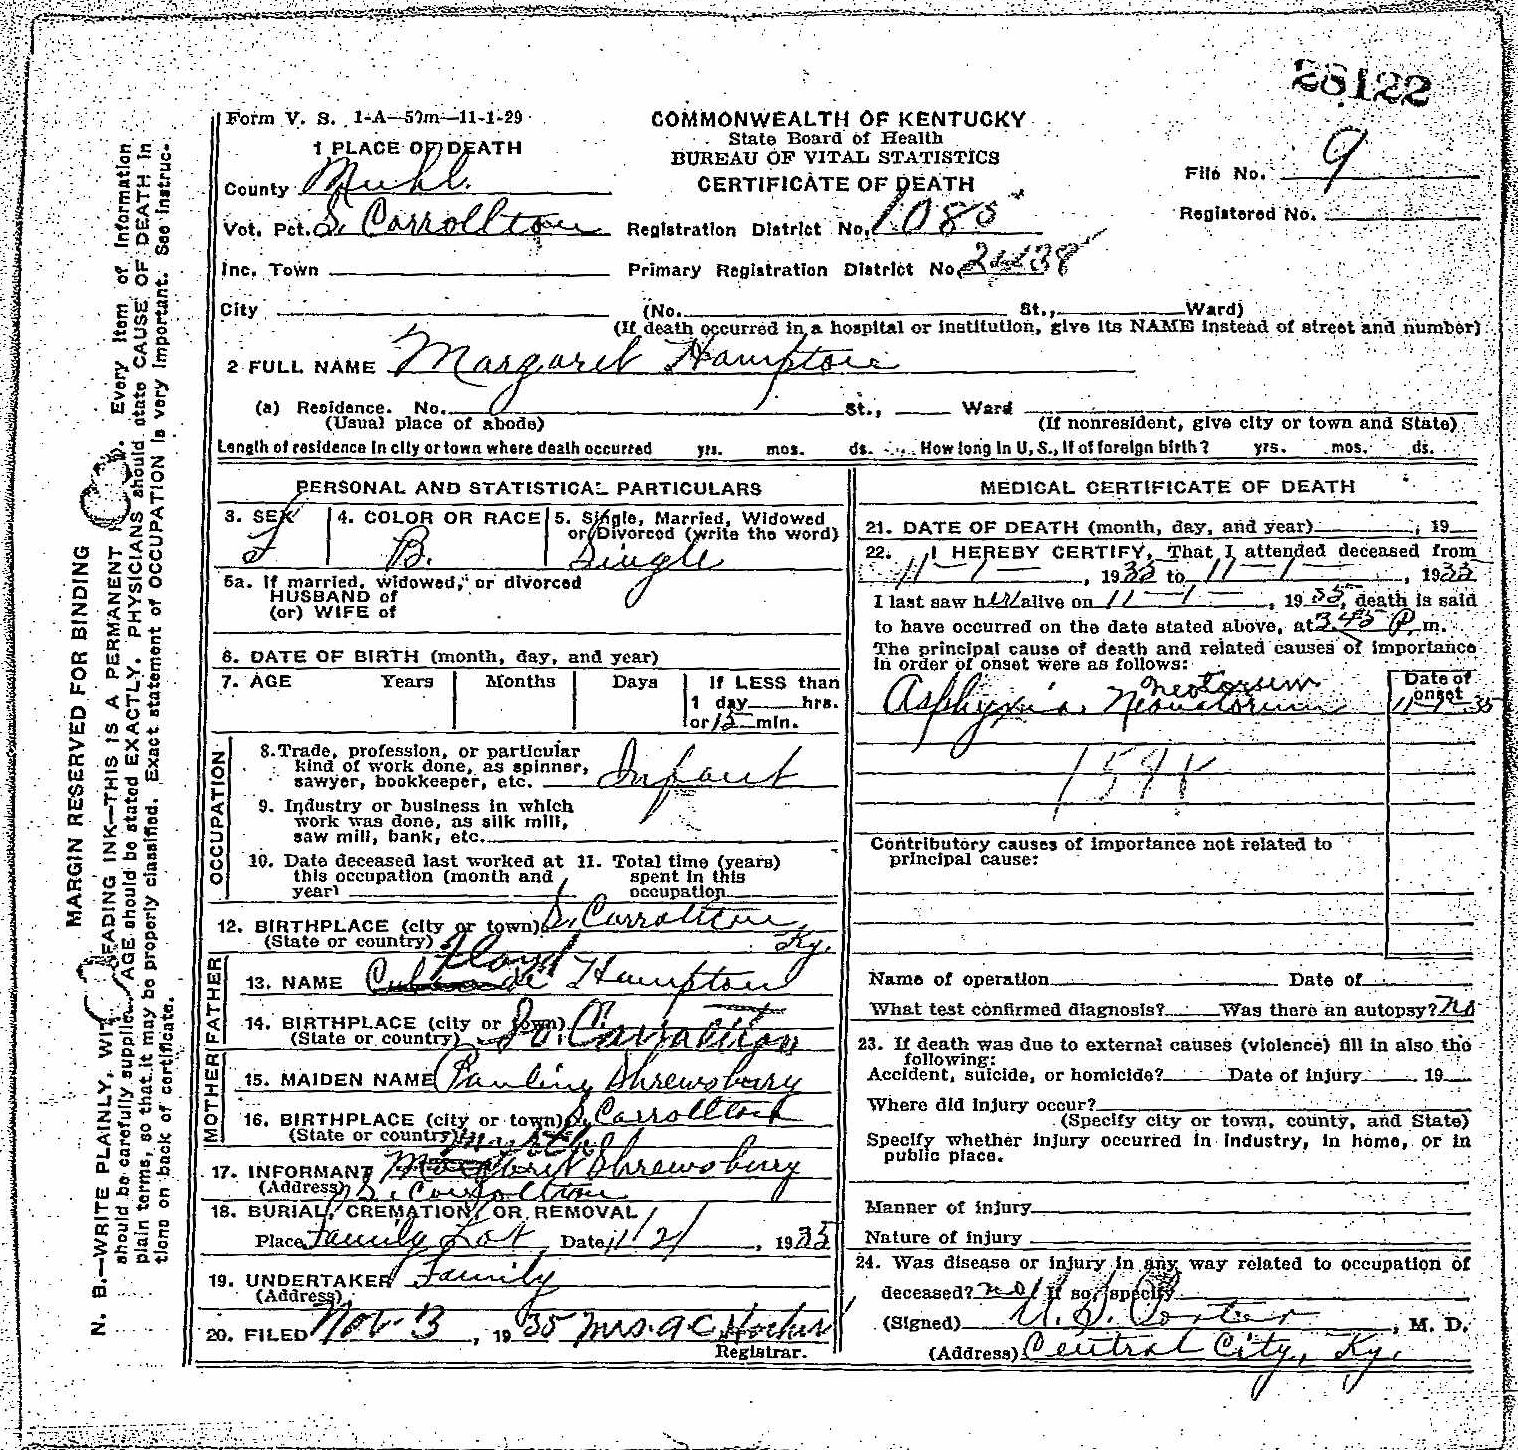 28122
Form V. S. 1-A—50m—11-1-29
COMMONWEALTH OF KENTUCKY
State Board of Health
BUREAU OF VITAL STATISTICS
CERTIFICATE OF DEATH
1 PLACE OF DEATH
County Muhl.
File No. 9
Vot. Pct. S. Carrollton
Registration District No. 1085
Registered No.
Inc. Town
Primary Registration District No.
City (No. St., Ward)
(If death occurred in a hospital or institution, give its NAME instead of street and number)
2 FULL NAME Margaret Hampton
(a) Residence. No. St., Ward
(Usual place of abode) (If nonresident, give city or town and State)
Length of residence in city or town where death occurred yrs. mos. ds. How long in U, S., if of foreign birth? yrs. mos. ds.
PERSONAL AND STATISTICAL PARTICULARS
3. SEX F
4. COLOR OR RACE B.
5. Single, Married, Widowed
or Divorced (write the word)
Single
5a. If married, widowed, or divorced
HUSBAND of
(or) WIFE of
6. DATE OF BIRTH (month, day, and year)
7. AGE Years Months Days If LESS than
1 day hrs.
or 15 min.
OCCUPATION
8. Trade, profession, or particular
kind of work done, as spinner,
sawyer, bookkeeper, etc. Infant
9. Industry or business in which
work was done, as silk mill,
saw mill, bank, etc.
10. Date deceased last worked at
this occupation (month and
year)
11. Total time (years)
spent in this
occupation
12. BIRTHPLACE (city or town) S. Carrollton
(State or country) Ky.
FATHER
13. NAME Floyd Hampton
14. BIRTHPLACE (city or town) So. Carrollton
(State or country)
MOTHER
15. MAIDEN NAME Pauline Shrewsberry
16. BIRTHPLACE (city or town) S. Carrollton
(State or country)
17. INFORMANT Shrewsberry
(Address) S. Carrollton
18. BURIAL, CREMATION, OR REMOVAL
Place Family Lot Date 11/2/, 1935
19. UNDERTAKER Family
(Address)
20. FILED Nov. 13, 1935 Mrs. A C
Registrar.
MEDICAL CERTIFICATE OF DEATH
21. DATE OF DEATH (month, day, and year) , 19
22. I HEREBY CERTIFY, That I attended deceased from
11—1—, 1935 to 11—1—, 1935
I last saw her alive on 11—1—, 1935, death is said
to have occurred on the date stated above, at 3 45 P. m.
The principal cause of death and related causes of importance
in order of onset were as follows:
Date of
onset
Neotorum
Asphyxia Neonatorum 11-1-35
Contributory causes of importance not related to
principal cause:
Name of operation Date of
What test confirmed diagnosis? Was there an autopsy? No
23. If death was due to external causes (violence) fill in also the
following:
Accident, suicide, or homicide? Date of injury 19
Where did injury occur?
(Specify city or town, county, and State)
Specify whether injury occurred in industry, in home, or in
public place.
Manner of injury
Nature of injury
24. Was disease or injury in any way related to occupation of
deceased? no If so, specify
(Signed) Porter, M. D.
(Address) Central City, Ky.
MARGIN RESERVED FOR BINDING
N. B.—WRITE PLAINLY, WITH UNFADING INK—THIS IS A PERMANENT Every item of information
should be carefully supplied. AGE should be stated EXACTLY. PHYSICIANS should state CAUSE OF DEATH in
plain terms, so that it may be properly classified. Exact statement of OCCUPATION is very important. See instruc-
tions on back of certificate.